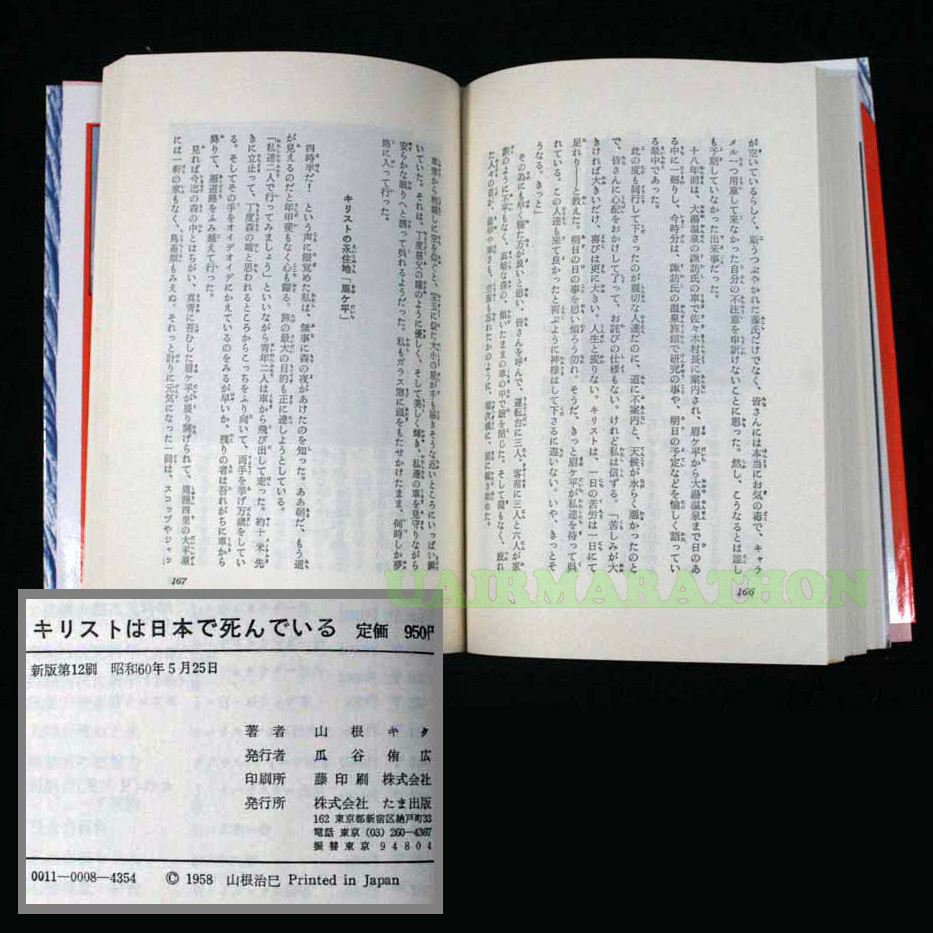 が空いているらしく、斯うつぶやかれた藤氏だけでなく、皆さんには本当にお気の毒で、キャラ
メル一つ用意して来なかった自分の不注意を申訳けないことに思った。然し、こうなるとは誰し
も予期していなかった出来事だった。
十八年前、大湯温泉の諏訪氏の車で佐々木村長に案内され、眉ケ平から大湯温泉まで日のあ
る中に一廻りし、今時分は、諏訪氏の温泉旅館で研究の事や、明日の予定などを愉しく語ってい
る最中であった。
此の度も同行して下さったのが親切な人達だのに、道に不案内と、天候が永らく悪かったのと
で、皆さんに心配をおかけして了って、お詫びの仕様もない。けれど私は信ずる。「苦しみが大
きければ大きいだけ、喜びは更に大きい。人生と変りない。キリストは、一日の苦労は一日にて
足れり——と教えた。明日の日の事を思い煩らう勿れ。そうだ、きっと眉ケ平が私達を待って呉
れている。この人達も来て良かったと喜ぶように神様はして下さるに違いない。いや、きっとそ
うなる。きっと」
その為にも早く寝た方が良いと思い、皆さんを呼んで、運転台に三人、客席に三人と六人が家
族のように不平もなく、真暗な森の、傾いたままの車の中で眼を閉じた。そして間もなく、疲れ
た人々の首が
166
いていた。それは、丁度慈父の瞳のように優しく、そして美しく輝き、私達の車を見守りながら
安らかな眠りへと誘って呉れるようだった。私もガラス窓に頭をもたせかけたまま、何時しか夢
路に入って行った。
キリストの永住地「眉ケ平」
四時半だ！　という声に眼覚めた私は、無事に森の夜があけたのを知った。ああ朝だ、もう道
が見えるのだと年甲斐もなく心も躍る。旅の最大の目的も正に達しようとしている。
「私達二人で行ってみましょう」といいながら青年二人が車から飛び出して走った。約十米先
きに立止って、丁度森の端と思われるところからこっちをふり向いて、両手を挙げ万歳をしてい
る。そしてその手をオイデオイデにかえているのをみるが早いか、残りの者は吾れがちに車から
降りて、悪道路をふみ越えて行った。
見れば今迄の森の中とはちがい、真青に苔むした眉ケ平が展り開げられて、周囲四里の大平原
には一軒の家もなく、鳥畜類もみえぬ。それっと許りに元気になった一同は、スコップやジャッ
167
UAIRMARATHON
キリストは日本で死んでいる　定価 950円
新版第12刷　昭和60年5月25日
著者　山根キク
発行者　瓜谷侑広
印刷所　藤印刷 株式会社
発行所　株式会社 たま出版
162 東京都新宿区納戸町33
電話 東京 (03) 260-4367
振替東京 94804
0011-0008-4354　© 1958 山根治巳 Printed in Japan